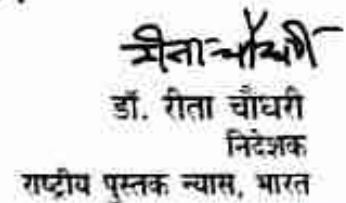 रीता चौधरी
डॉ. रीता चौधरी
निदेशक
राष्ट्रीय पुस्तक न्यास, भारत